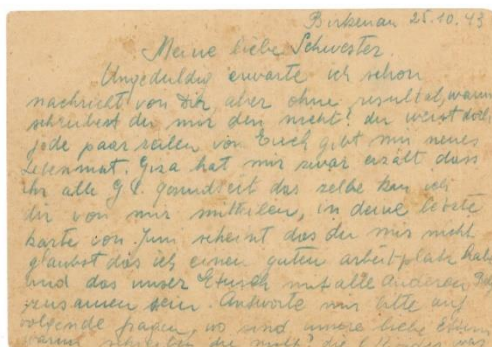 Birkenau 25.10.43
Meine liebe Schwester.
Ungeduldig erwarte ich schon
nachricht von dir, aber ohne resultat, warum
schreibest du mir den nicht? du weist doch
jede paar zeilen von Euch gibt mir neues
Lebenmut. Giza hat mir zwar erzält dass
ihr alle G.L. gesund seit das selbe kan ich
dir von mir mitteilen, in deine letzte
karte von Juni scheint das du mir nicht
glaubst das ich einen guten arbeitplatz habe
und das unser Etusch mit alle anderen
zusammen sein. Antworte mir bitte auf
volgende fragen, wo sind unsere liebe Eltern
warum schreiben die nicht? die